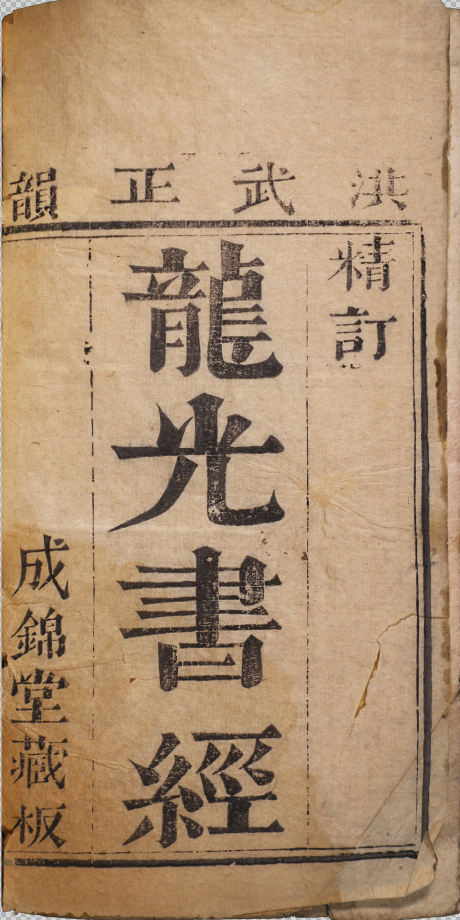 洪武正韻
精訂
龍光書經
成錦堂藏板